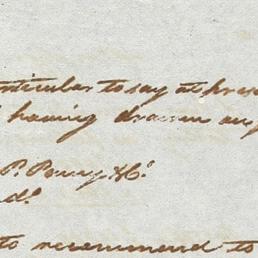 particular to say at pres
having drawn any
P. Perry & Co.
to recommend to